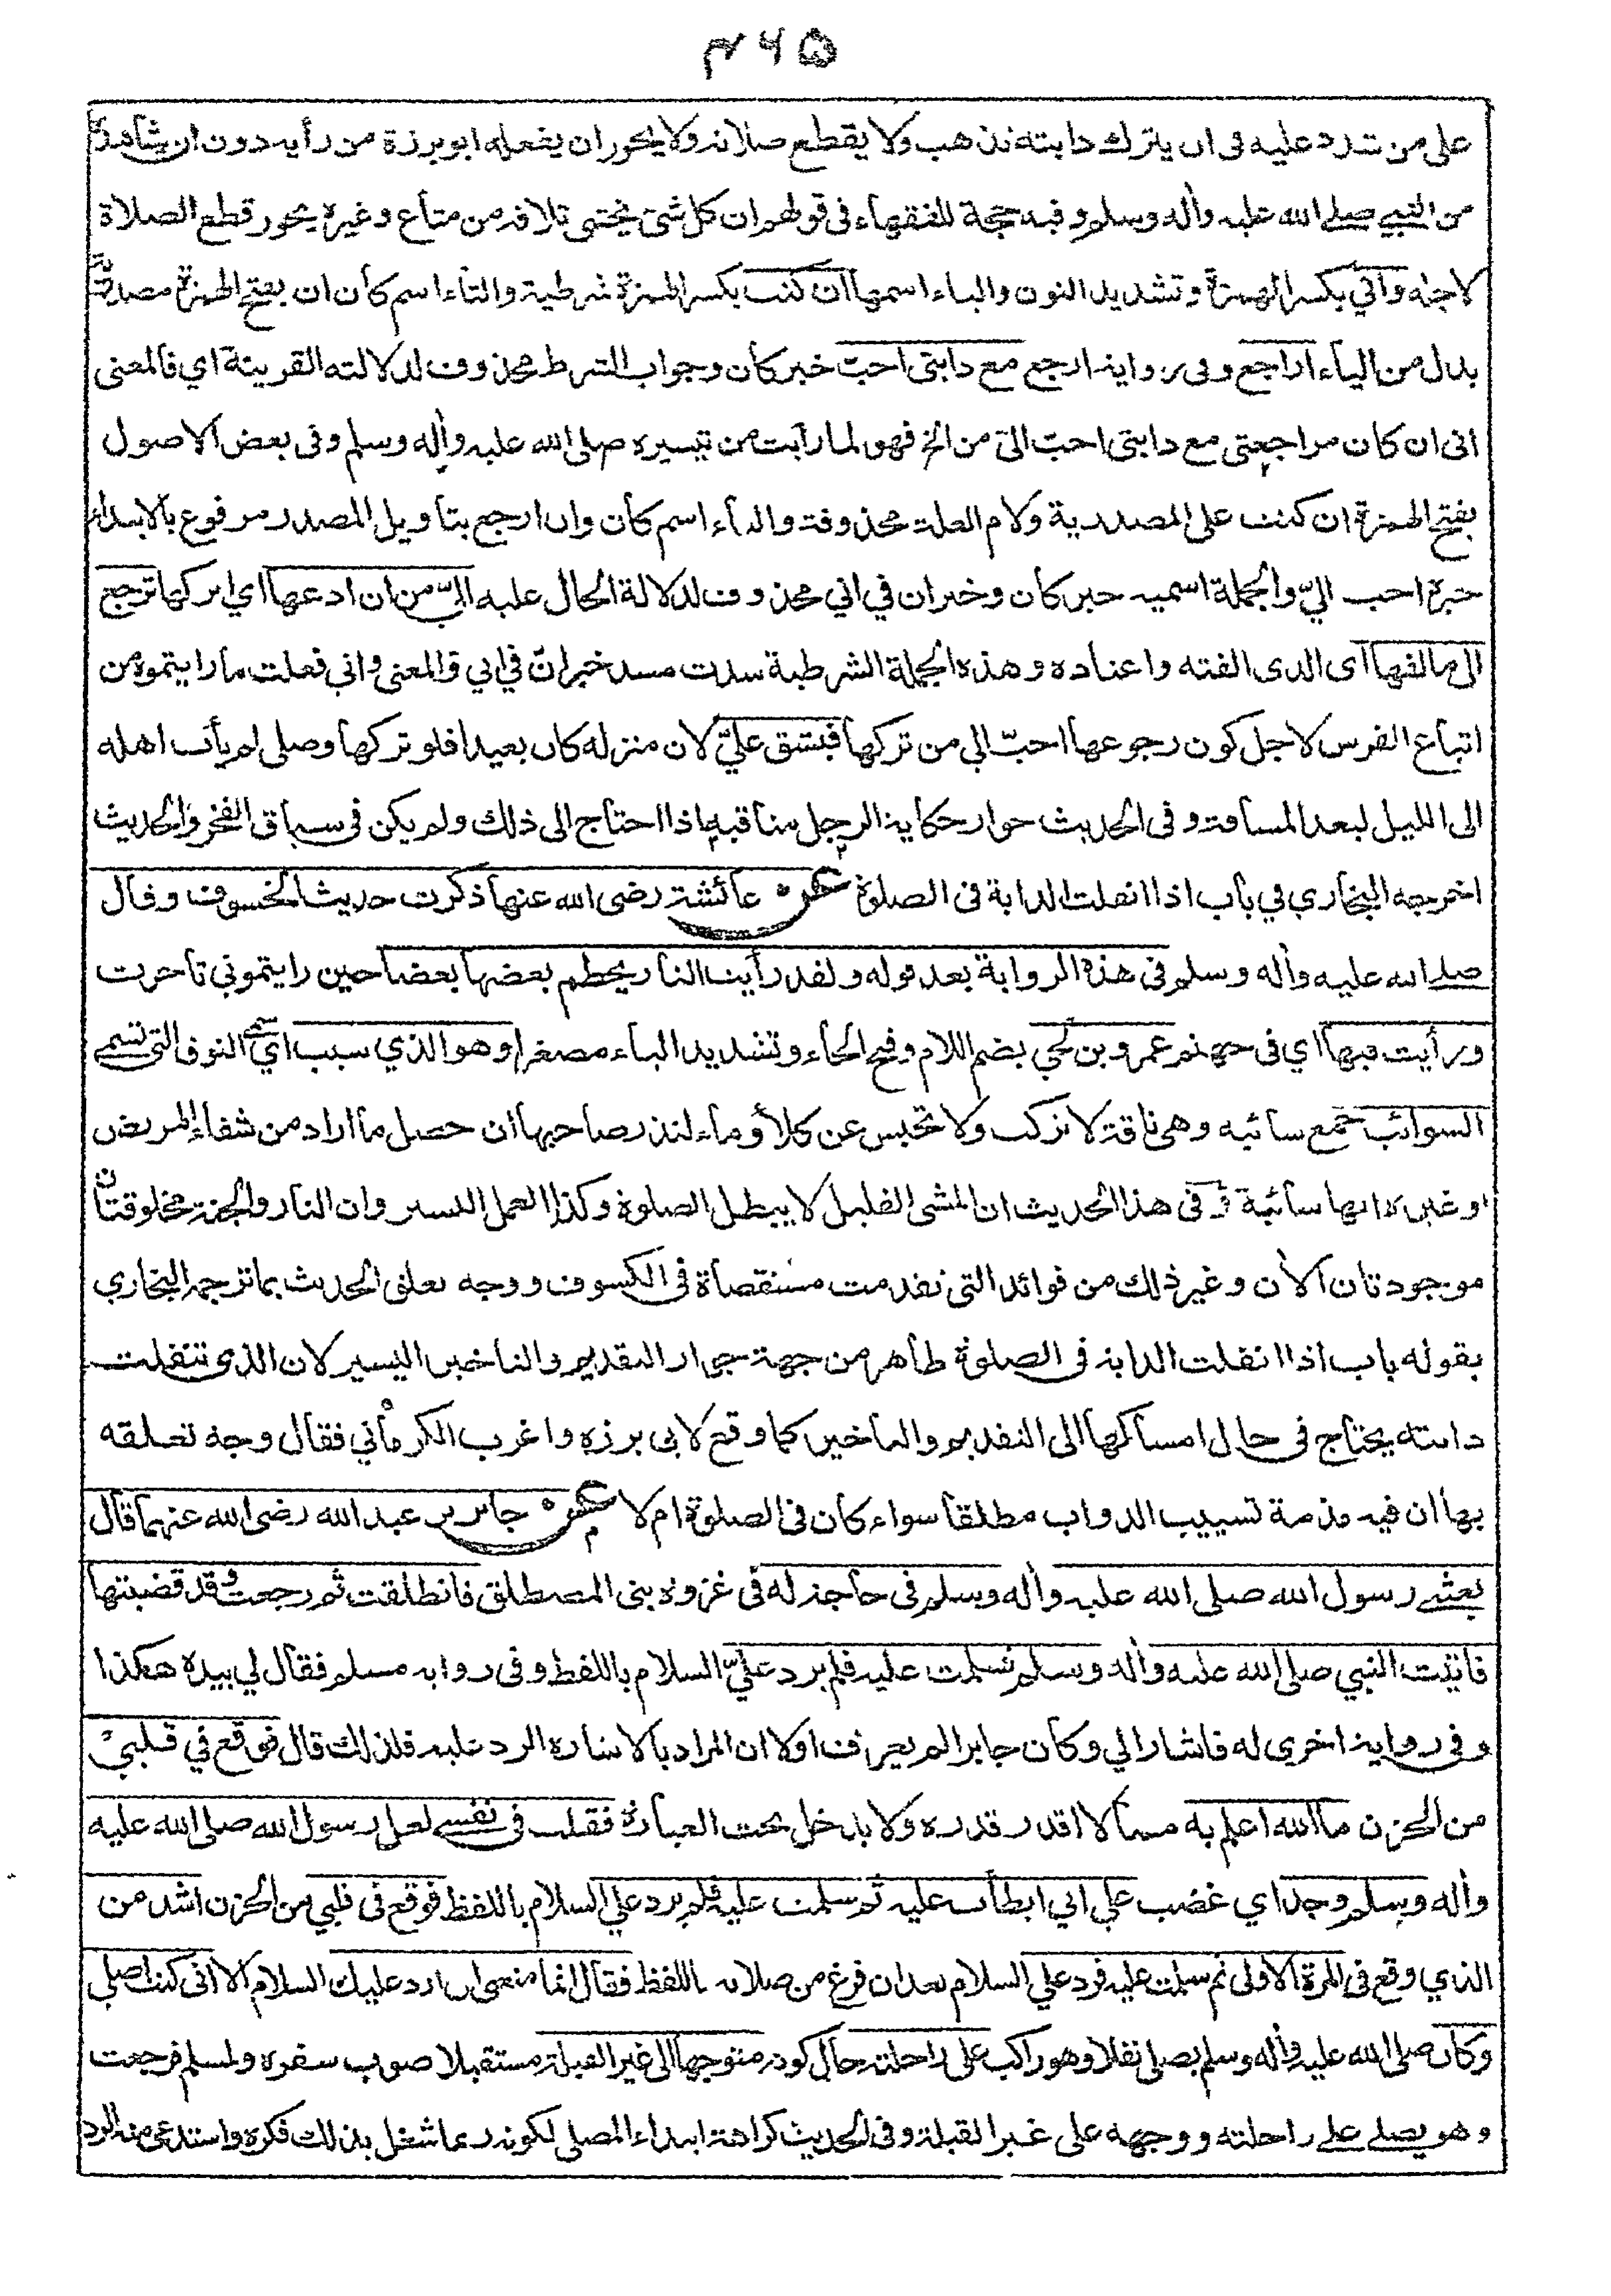 ۴۶۵
على من تردد عليه فى ان يترك دابته تذهب ولا يقطع صلاته ولا يجوز ان يفعله ابو برزة من رأيه دون ان شاهدة
من النبي صلى الله عليه وأله وسلم وفيه حجة للفقهاء فى قولهم ان كل شئ يخشى تلافه من متاع وغيره يجوز قطع الصلاة
لاجله واني بكسر الهمزة وتشديد النون والياء اسمها ان كنت بكسر الهمزة شرطية والتاء اسم كان ان بفتح الهمزة مصدرية
بدل من الياء اراجع وفى رواية ارجع مع دابتى احبّ خبر كان وجواب الشرط محذوف لدلالته القرينة اي فالمعنى
انى ان كان مراجعتى مع دابتى احبّ الىّ من الخ فهو لما رأيت من تيسيره صلى الله عليه وأله وسلم وفى بعض الاصول
بفتح الهمزة ان كنت على المصدرية ولام العلة محذوفة والتاء اسم كان وان ارجع بتأويل المصدر مرفوع بالابتداء
خبره احب اليّ والجملة اسميه خبر كان وخبر ان في اني محذوف لدلالة الحال عليه اليّ من ان ادعها اي اتركها ترجع
الى مالفها اى الذى الفته واعتاده وهذه الجملة الشرطية سدت مسد خبر انّ في اني فالمعنى واني فعلت ما رايتموه من
اتباع الفرس لاجل كون رجوعها احبّ الي من تركها فيشق عليّ لان منزله كان بعيدا فلو تركها وصلى لم يأت اهله
الى الليل لبعد المسافة وفى الحديث جواز حكاية الرجل مناقبه اذا احتاج الى ذلك ولم يكن فى سياق الفخر والحديث
اخرجه البخاري في باب اذا انفلت الدابة فى الصلوة عن عائشة رضى الله عنها ذكرت حديث الخسوف وقال
صلى الله عليه وأله وسلم فى هذه الرواية بعد قوله ولقد رأيت النار يحطم بعضها بعضا حين رايتموني تأخرت
ورأيت فيها اي فى جهنم عمرو بن لحي بضم اللام وفتح الحاء وتشديد الياء مصغرا وهو الذي سيب اي سمى النوق التى تسمى
السوائب جمع سائبه وهى ناقة لا تركب ولا تحبس عن كلأ وماء لنذر صاحبها ان حصل ما اراد من شفاء المريض
او غيره انها سائبة وفى هذا الحديث ان المشى القليل لا يبطل الصلوة وكذا العمل اليسير وان النار والجنة مخلوقتان
موجودتان الأن وغير ذلك من فوائد التى تقدمت مستقصاة فى الكسوف ووجه تعلق الحديث بما ترجم البخاري
بقوله باب اذا انفلت الدابة فى الصلوة ظاهر من جهة جواز التقديم والتاخير اليسير لان الذى تنفلت
دابته يحتاج فى حال امساكها الى التقديم والتاخير كما وقع لابى برزه واغرب الكرمانى فقال وجه تعلقه
بها ان فيه مذمة تسييب الدواب مطلقا سواء كان فى الصلوة ام لا عن جابر بن عبد الله رضى الله عنهما قال
بعثنى رسول الله صلى الله عليه وأله وسلم فى حاجة له فى غزوة بنى المصطلق فانطلقت ثم رجعت وقد قضيتها
فاتيت النبي صلى الله عليه وأله وسلم فسلمت عليه فلم يرد عليّ السلام باللفظ وفى رواية مسلم فقال لي بيده هكذا
وفى رواية اخرى له فاشار الي وكان جابرا لم يعرف اولا ان المراد بالاشارة الرد عليه فلذلك قال فوقع في قلبي
من الحزن ما الله اعلم به مما لا اقدر قدره ولا يدخل تحت العبارة فقلت فى نفسى لعل رسول الله صلى الله عليه
وأله وسلم وجد اي غضب علي اني ابطأت عليه ثم سلمت عليه فلم يرد علي السلام باللفظ فوقع فى قلبي من الحزن اشد من
الذي وقع فى المرة الاولى ثم سلمت عليه فرد علي السلام بعد ان فرغ من صلاته باللفظ فقال انما منعنى ان ارد عليك السلام الا انى كنت اصلي
وكان صلى الله عليه وأله وسلم يصلى نفلا وهو راكب على راحلته حال كونه متوجها الى غير القبلة مستقبلا صوب سفره ولمسلم فرجعت
وهو يصلى على راحلته ووجهه على غير القبلة وفى الحديث كراهة ابتداء المصلي لكونه ربما شغل بذلك فكره واستدعى منه الرد